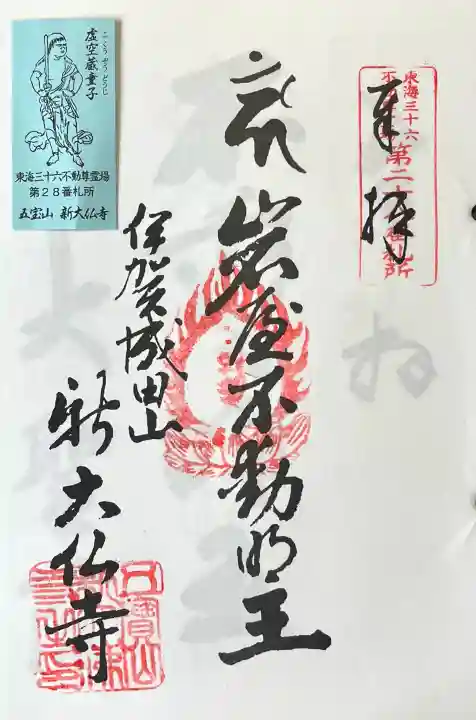 東海三十六
不動
第二十八番札所
奉拝
岩屋不動明王
伊賀城田山
新大仏寺
五寶山
こくうぞうどうじ
虚空蔵童子
東海三十六不動尊霊場
第28番札所
五宝山 新大仏寺